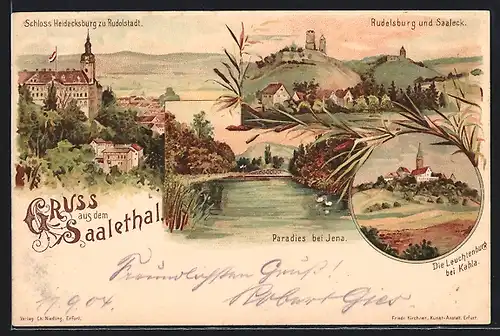 Schloss Heidecksburg zu Rudolstadt.
Rudelsburg und Saaleck.
Gruss
aus dem
Saalethal.
Paradies bei Jena.
Die Leuchtenburg
bei Kahla.
Freundlichsten Gruß!
11.9.04.
Robert
Verlag Ch. Niedling, Erfurt.
Friedr. Kirchner, Kunst-Anstalt, Erfurt.